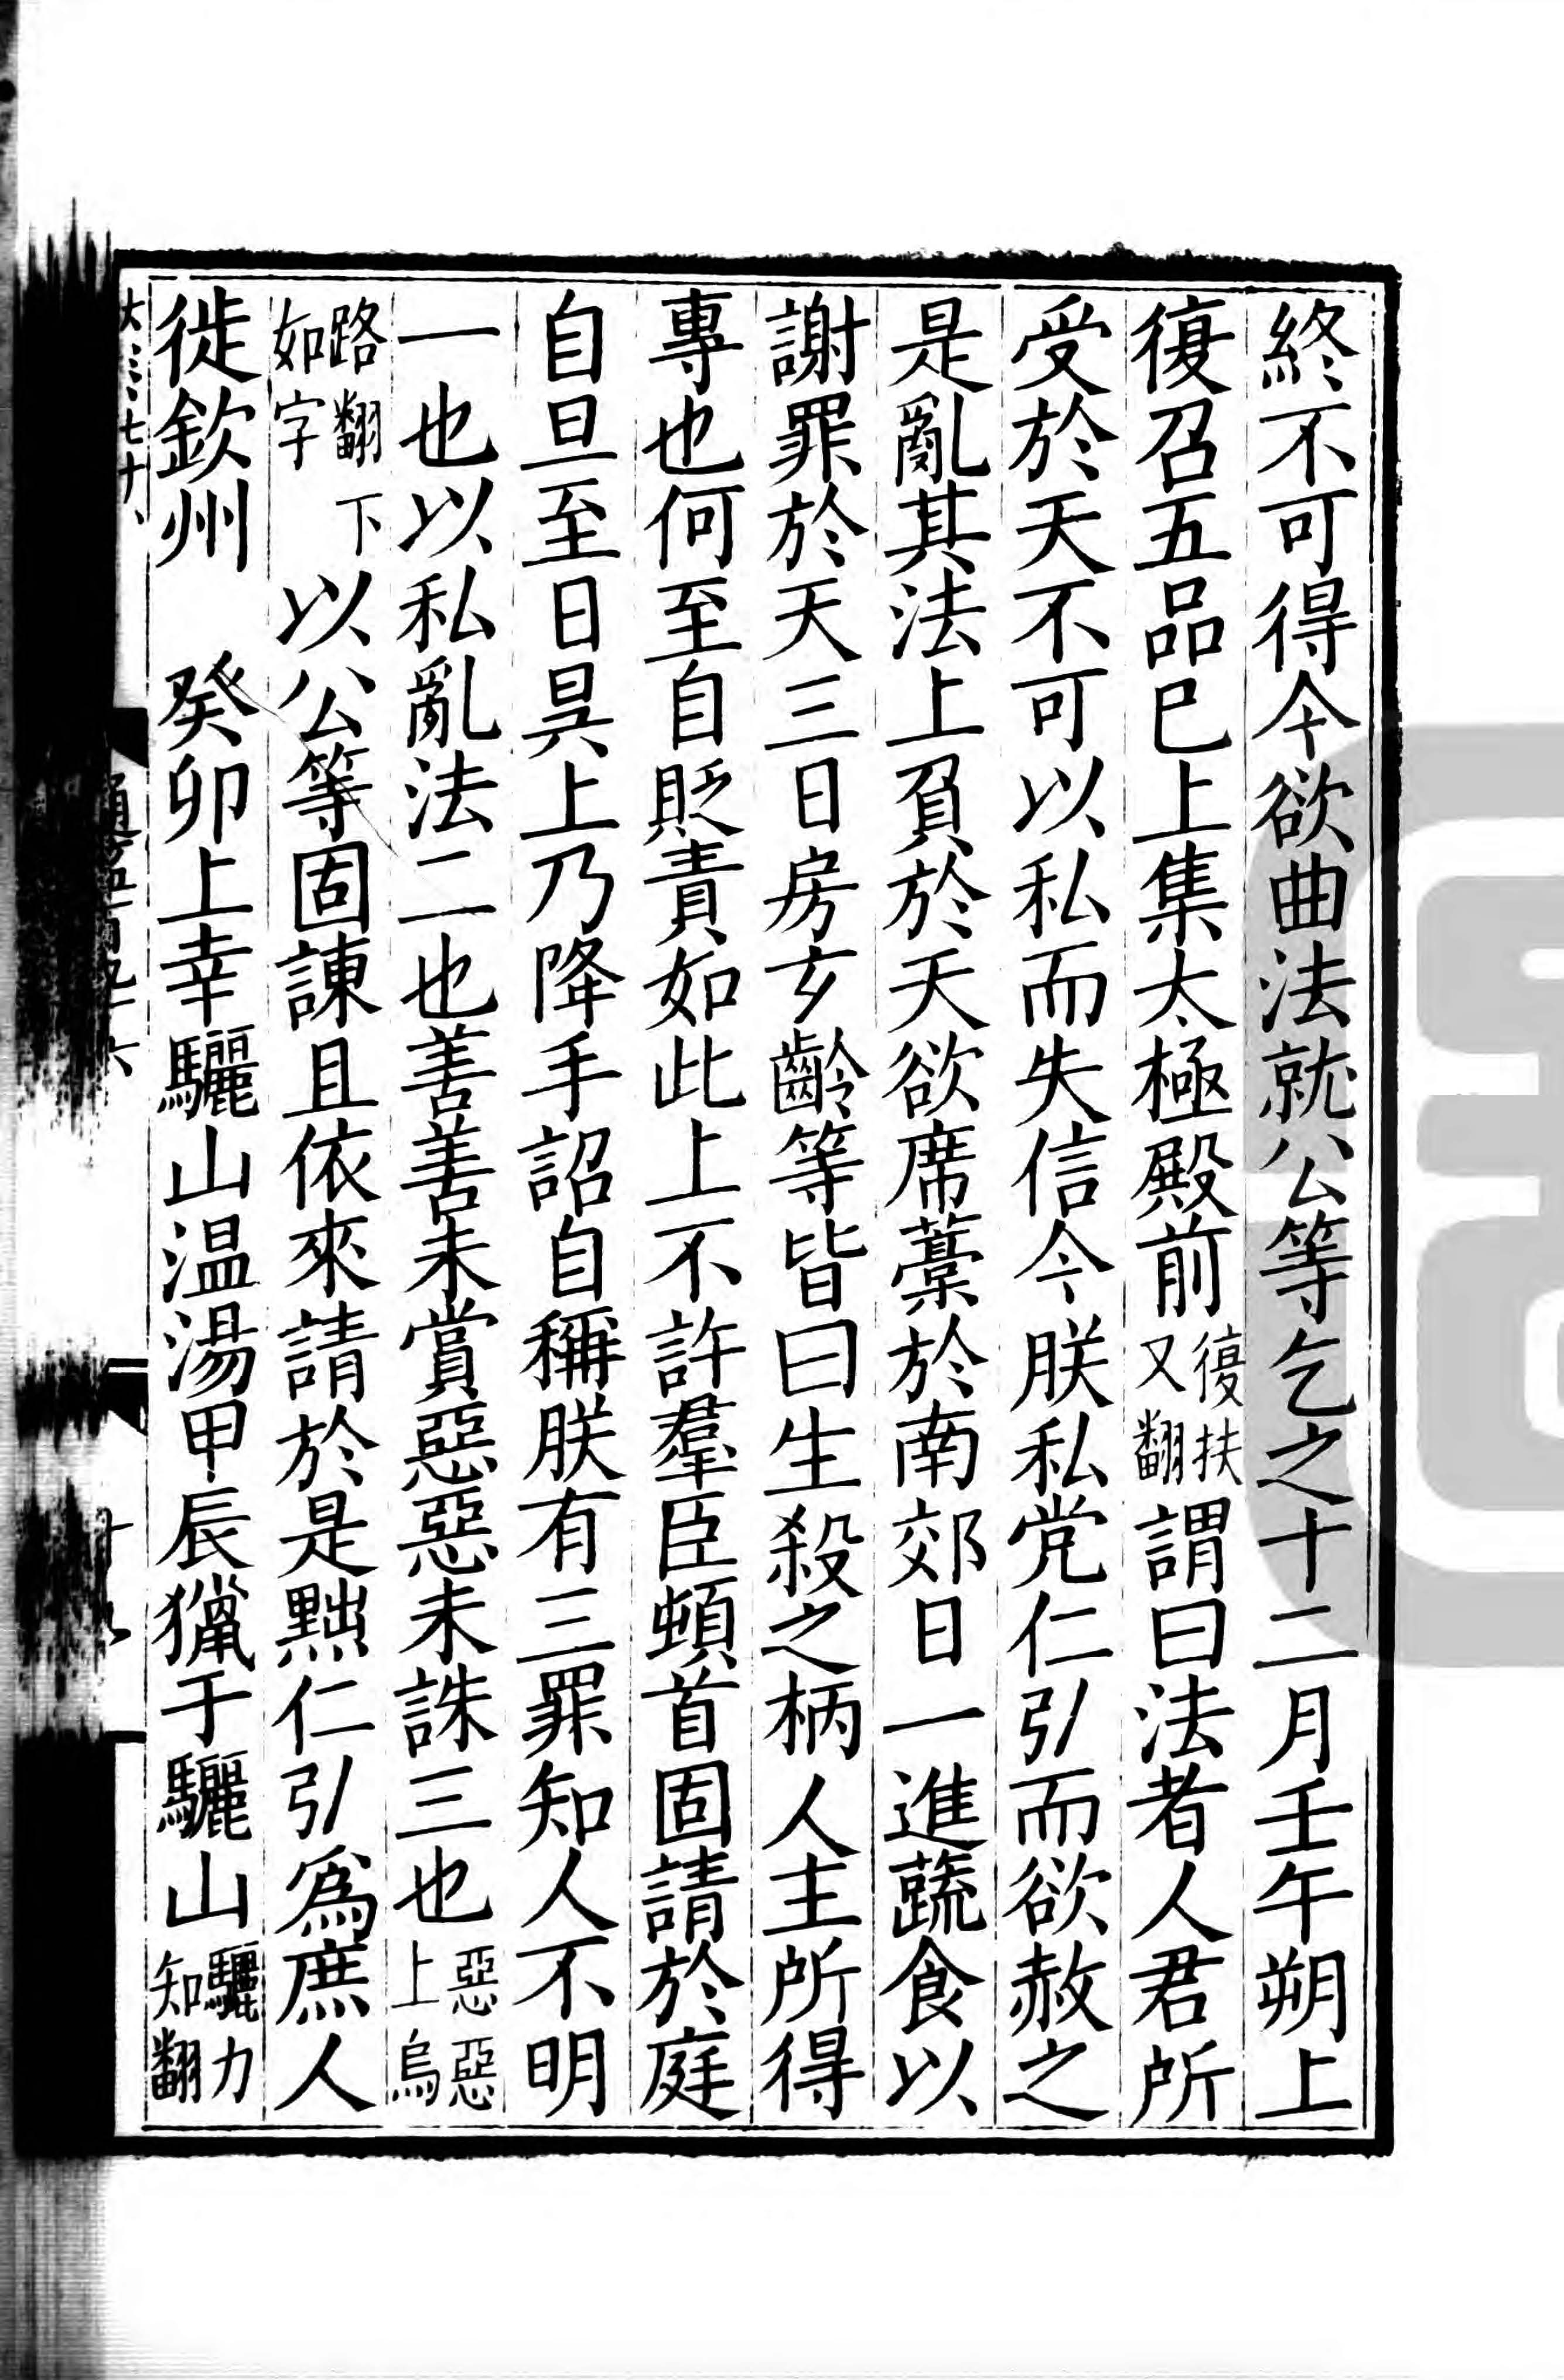 終不可得今欲曲法就公等乞之十二月壬午朔上
復召五品已上集太極殿前復扶又翻謂曰法者人君所
受於天不可以私而失信今朕私党仁引而欲赦之
是亂其法上負於天欲席藁於南郊日一進蔬食以
謝罪於天三日房玄齡等皆曰生殺之柄人主所得
專也何至自貶責如此上不許羣臣頓首固請於庭
自旦至日昃上乃降手詔自稱朕有三罪知人不明
一也以私亂法二也善善未賞惡惡未誅三也惡惡上烏
路翻下如字以公等固諫且依來請於是黜仁引為庶人
徙欽州 癸卯上幸驪山温湯甲辰獵于驪山驪力知翻